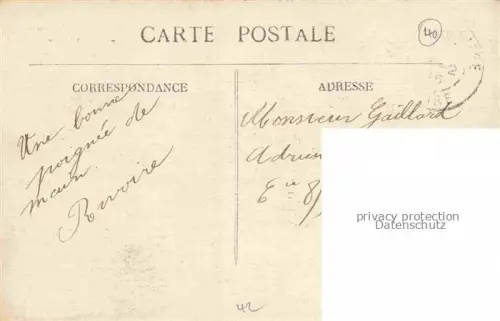 CARTE POSTALE
40
CORRESPONDANCE
Une bonne
poignée de
main.
Rivoire
ADRESSE
Monsieur Gaillard
Adrien
E ie 8/
privacy protection
Datenschutz
42